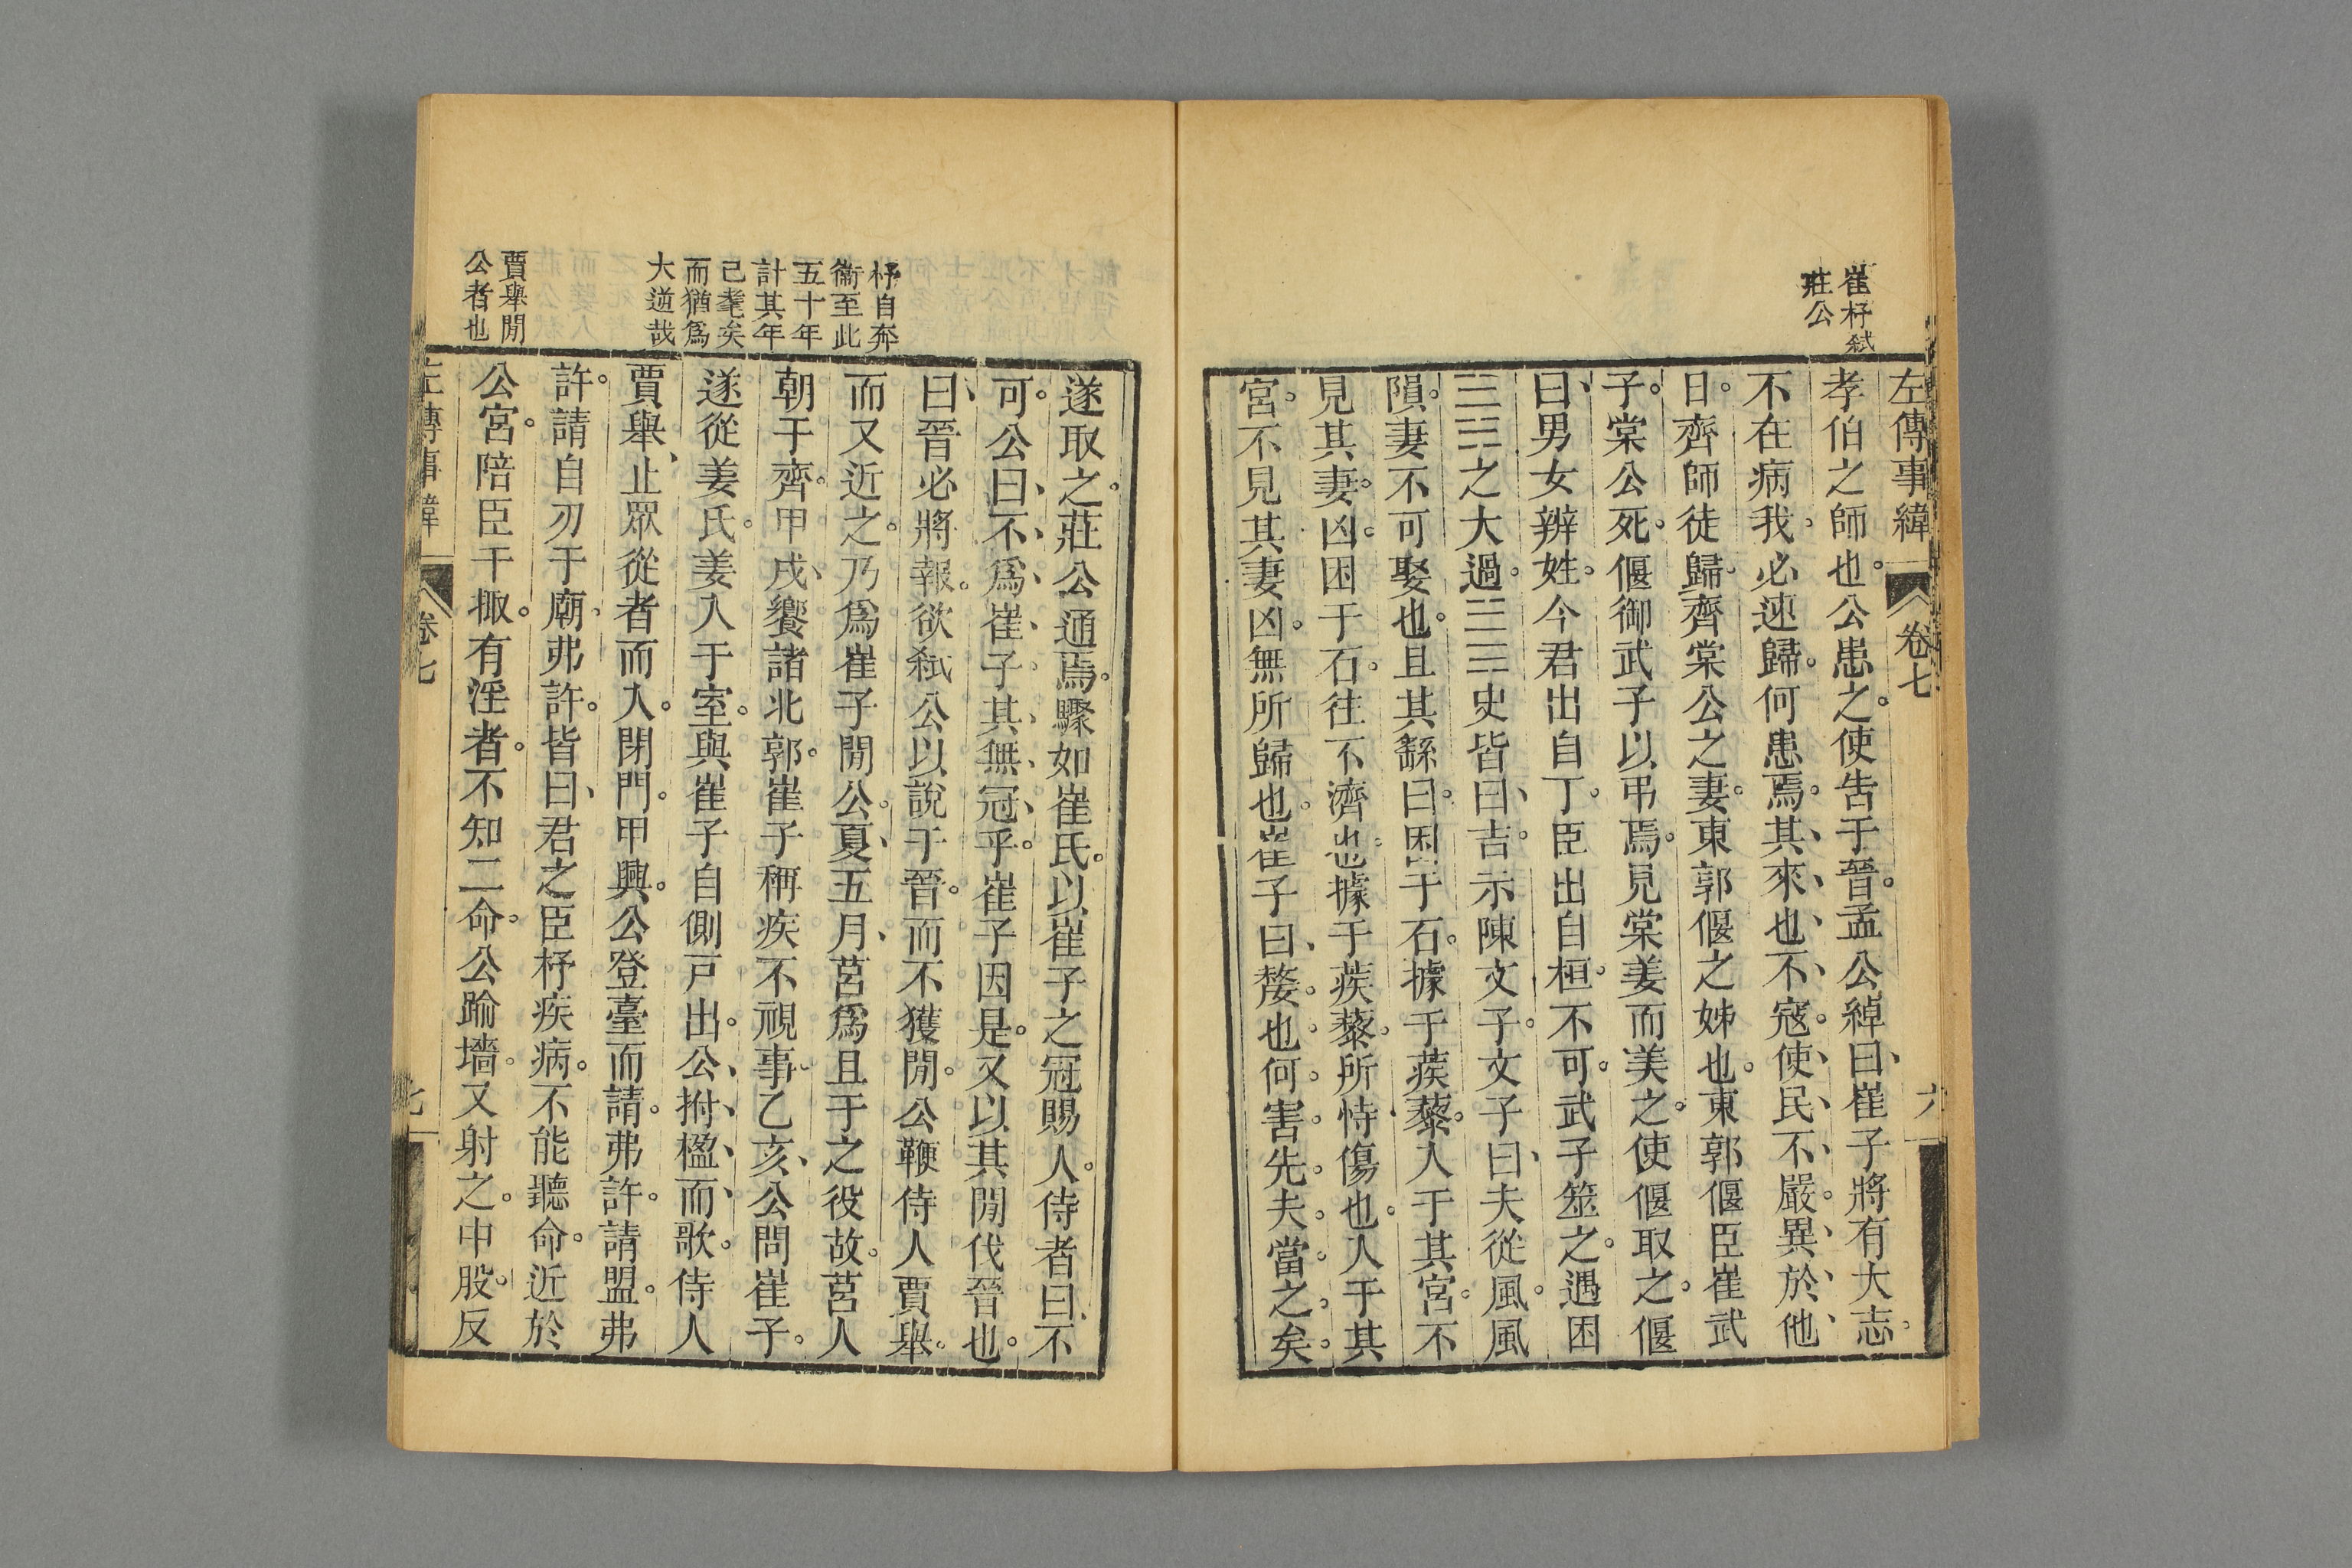 崔杼弑
莊公
左傳事緯
卷七
六
孝伯之師也。公患之。使告于晉。孟公綽曰、崔子將有大志。
不在病我、必速歸。何患焉。其、來、也、不、寇。使、民、不、嚴。異、於、他、
日。齊師徒歸。齊棠公之妻。東郭偃之姊也。東郭偃臣崔武
子。棠公死。偃御武子以弔焉。見棠姜而美之。使偃取之。偃
曰、男女辨姓。今君出自丁。臣出自桓。不可。武子筮之。遇困
☱☵之大過。☱☴史皆曰、吉。示陳文子。文子曰、夫從風。風
隕。妻不可娶也。且其繇曰。困于石。據于蒺藜。入于其宮。不
見其妻。凶。困于石。往不濟也。據于蒺藜。所恃傷也。入于其
宮。不見其妻凶。無所歸也。崔子曰、嫠。也。何。害。先。夫。當。之。矣。
遂取之。莊公通焉。驟如崔氏。以崔子之冠賜人。侍者曰、不
可。公曰、不、爲、崔、子、其、無、冠、乎。崔子因是。又以其閒伐晉也。
曰、晉必將報。欲弑公以說于晉。而不獲閒。公鞭侍人賈舉。
而又近之。乃爲崔子閒公。夏、五月、莒爲且于之役故。莒人
朝于齊。甲戌、饗諸北郭。崔子稱疾不視事。乙亥、公問崔子。
遂從姜氏。姜入于室。與崔子自側戶出。公、拊、楹、而、歌。侍人
賈舉、止眾從者而入。閉門。甲興。公登臺而請。弗許。請盟。弗
許。請自刃于廟。弗許。皆曰、君之臣杼疾病。不能聽命。近於
公宮。陪臣干掫。有淫者。不知二命。公踰墻。又射之。中股。反
左傳事緯
卷七
七
杼自奔
衛至此
五十年
計其年
己耄矣
而猶爲
大逆哉
賈舉閒
公者也